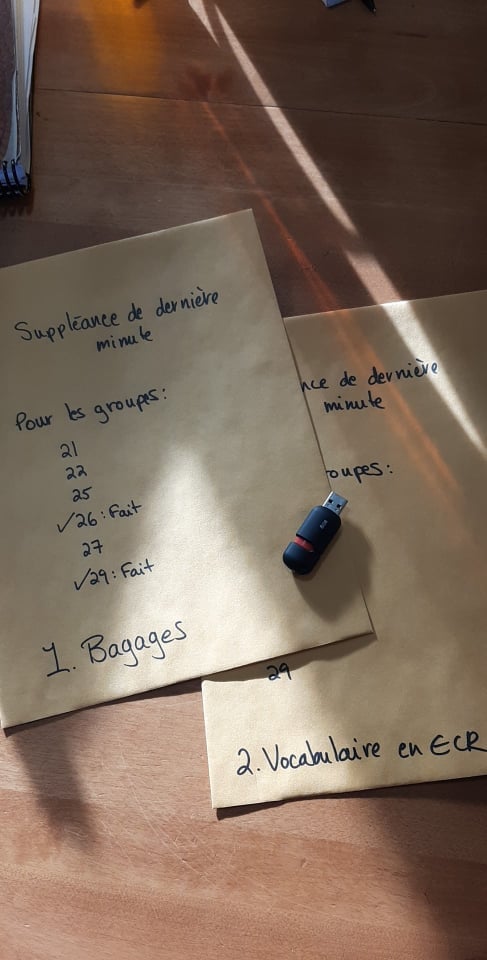 Suppléance de dernière
minute
Pour les groupes:
21
22
25
✓26: Fait
27
✓29: Fait
1. Bagages
nce de dernière
minute
oupes:
29
2. Vocabulaire en ECR